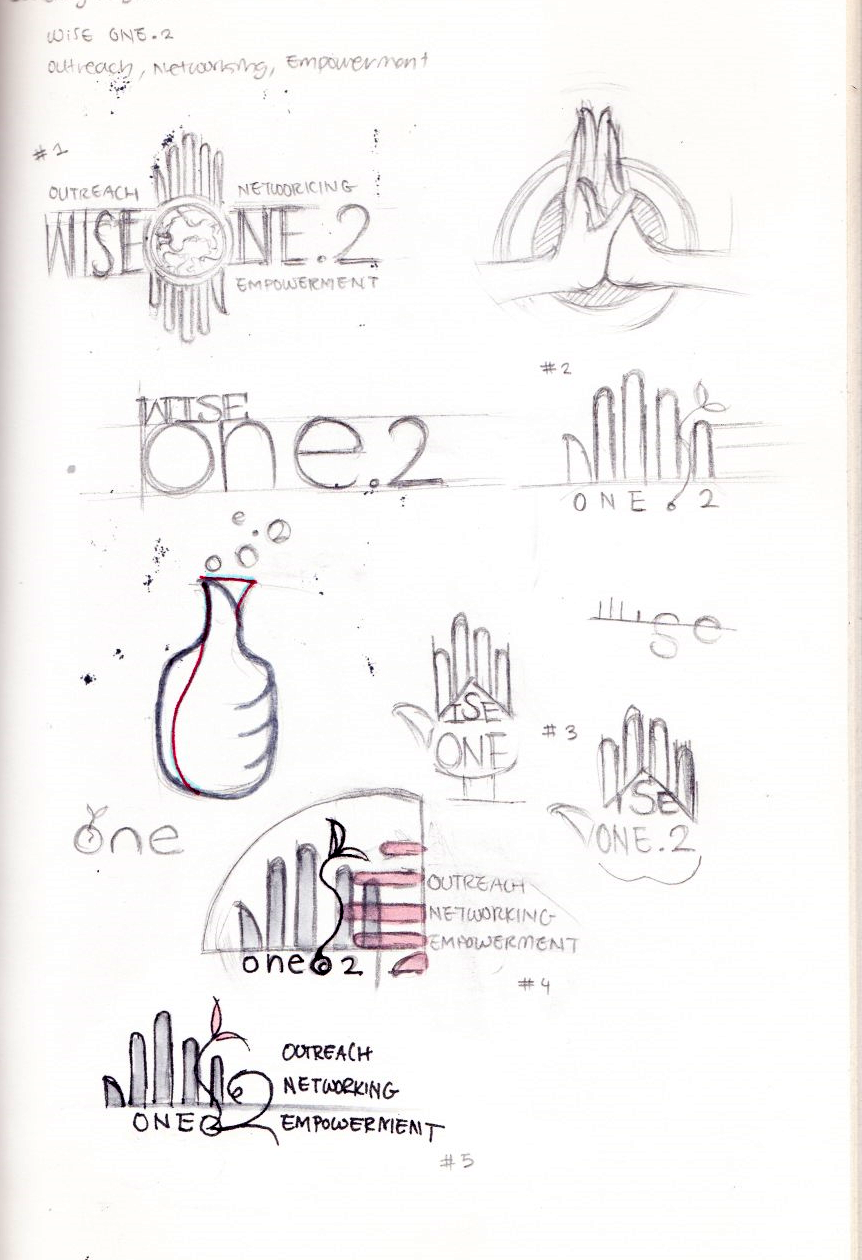 WISE ONE.2
Outreach, Networking, Empowerment
#1
OUTREACH NETWORKING
WISE ONE.2
EMPOWERMENT
WISE
one.2
#2
ONE.2
e.2
wise
ISE
ONE
#3
ISE
ONE.2
one
OUTREACH
NETWORKING
EMPOWERMENT
one 2
#4
OUTREACH
NETWORKING
ONE.2 EMPOWERMENT
#5